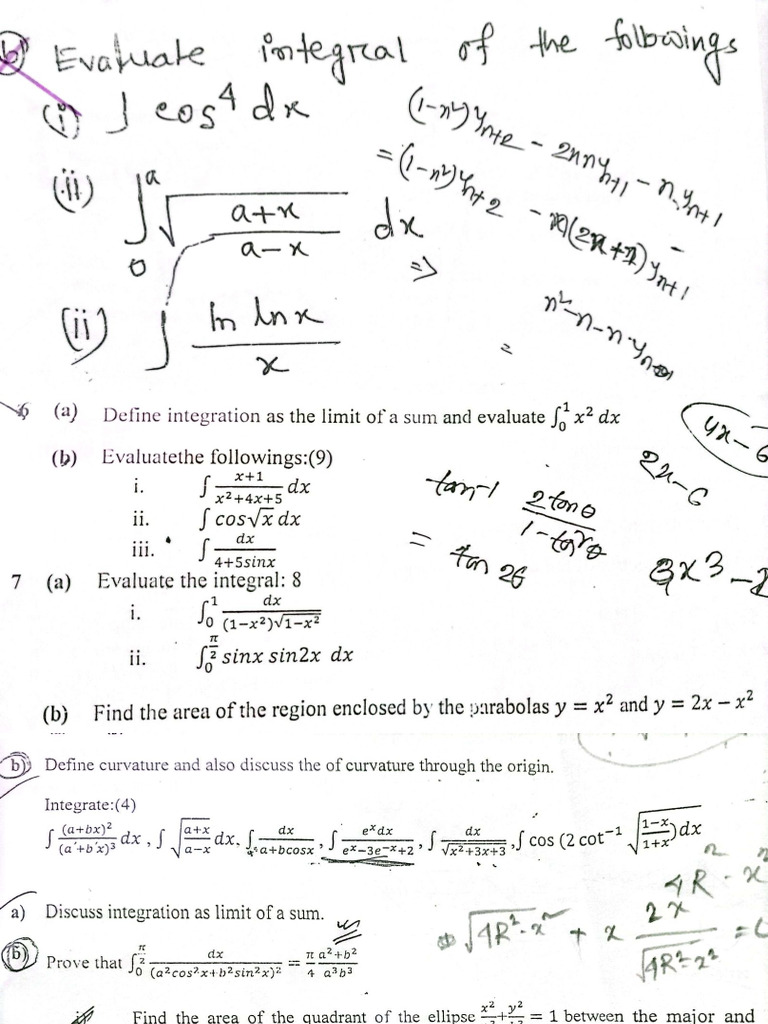 b) Evaluate integral of the followings
(i) ∫ cos⁴ dx
(1-x²)yₙ₊₂ - 2xnyₙ₊₁ - x yₙ₊₁
(ii) ∫₀ᵃ √(a+x)/(a-x) dx
=(1-x²)yₙ₊₂ - x(2n+1)yₙ₊₁ -
⇒
(ii) ∫ ln lnx / x
=
6 (a) Define integration as the limit of a sum and evaluate ∫₀¹ x² dx
4x-6
(b) Evaluatethe followings:(9)
2x-6
i. ∫ (x+1)/(x²+4x+5) dx
tan-1 2tanθ/1-tan²θ
ii. ∫ cos√x dx
iii. ∫ dx/(4+5sinx)
= tan 2θ
7 (a) Evaluate the integral: 8
i. ∫₀¹ dx/((1-x²)√(1-x²))
ii. ∫₀^(π/2) sinx sin2x dx
(b) Find the area of the region enclosed by the parabolas y = x² and y = 2x - x²
b) Define curvature and also discuss the of curvature through the origin.
Integrate:(4)
∫ (a+bx)²/(a´+b´x)³ dx , ∫ √((a+x)/(a-x)) dx, ∫ dx/(a+bcosx) , ∫ eˣdx/(eˣ-3e⁻ˣ+2) , ∫ dx/√(x²+3x+3) , ∫ cos (2 cot⁻¹ √((1-x)/(1+x))) dx
a) Discuss integration as limit of a sum.
√4R²-x² + x 2x/√4R²-x² =
(b) Prove that ∫₀^(π/2) dx/(a²cos²x+b²sin²x)² = π/4 (a²+b²)/(a³b³)
Find the area of the quadrant of the ellipse x²/ + y²/ = 1 between the major and